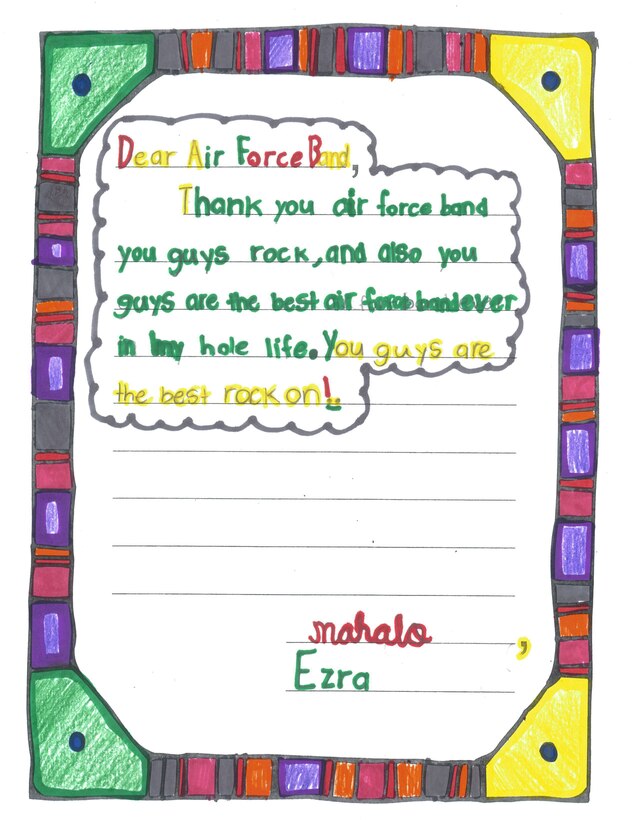 Dear Air Force Band,
Thank you air force band
you guys rock, and also you
guys are the best air force band ever
in my hole life. You guys are
the best rock on!
mahalo,
Ezra